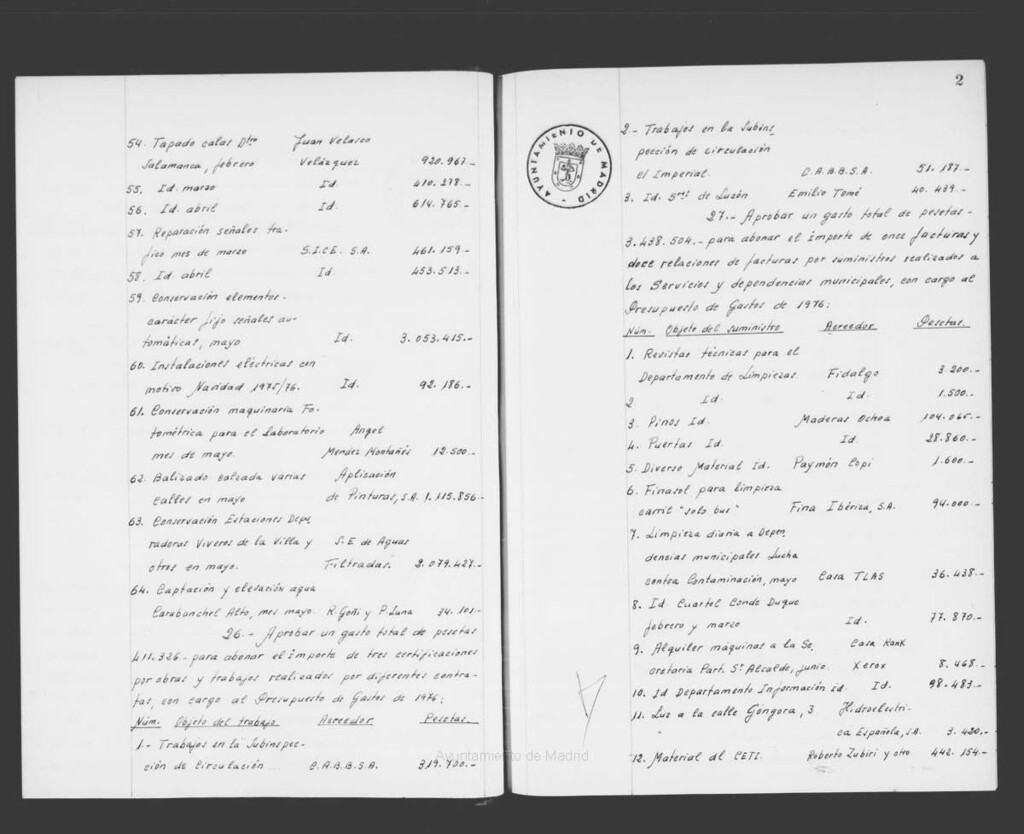 54. Tapado calas Dtto Juan Velasco
Salamanca, febrero Velázquez 920.967.-
55. Id. marzo Id. 410.278.-
56. Id. abril Id. 614.765.-
57. Reparación señales tra-
fico mes de marzo S.I.C.E. S.A. 461.159.-
58. Id abril Id. 453.513.-
59. Conservación elementos-
carácter fijo señales au-
tomáticas, mayo Id. 3.053.415.-
60. Instalaciones eléctricas con
motivo Navidad 1975/76. Id. 92.186.-
61. Conservación maquinaria Fo-
tométrica para el laboratorio Angel
mes de mayo. Mendez Montañés 12.500.-
62. Balizado calzada varias Aplicación
calles en mayo de Pinturas, S.A. 1.115.856.-
63. Conservación Estaciones Depu
radoras Viveros de la Villa y S.E de Aguas
otros en mayo. Filtradas. 2.079.427.-
64. Captación y elevación agua
Carabanchel Alto, mes mayo. R. Goñi y P. Luna 34.101.-
26.- Aprobar un gasto total de pesetas
411.326.- para abonar el importe de tres certificaciones
por obras y trabajos realizados por diferentes contra-
tas, con cargo al Presupuesto de Gastos de 1976:
Núm. Objeto del trabajo Acreedor Pesetas.
1.- Trabajos en la Subinspec-
ción de Circulación C.A.B.B.S.A. 319.700.-
2
AYUNTAMIENTO DE MADRID
2.- Trabajos en la Subins
pección de circulación
el Imperial. C.A.B.B.S.A. 51.187.-
3. Id. de Luzón Emilio Tomé 40.439.-
27.- Aprobar un gasto total de pesetas-
3.438.504.- para abonar el importe de once facturas y
doce relaciones de facturas por suministros realizados a
los Servicios y dependencias municipales, con cargo al
Presupuesto de Gastos de 1976:
Núm. Objeto del suministro Acreedor Pesetas.
1. Revistas técnicas para el
Departamento de Limpiezas Fidalgo 3.200.-
2 Id. Id. 1.500.-
3. Pinos Id. Maderas Ochoa 104.065.-
4. Puertas Id. Id. 28.860.-
5. Diverso Material Id. Paymón Copi 1.600.-
6. Finasol para limpieza
carril "solo bus" Fina Ibérica, S.A. 94.000.-
7. Limpieza diaria a Depen
dencias municipales Lucha
contra Contaminación, mayo Casa TLAS 36.438.-
8. Id. Cuartel Conde Duque
febrero y marzo Id. 77.870.-
9. Alquiler máquinas a la Se Casa Rank
cretaria Part. Sr Alcalde, junio. Xerox 8.468.-
10. Id Departamento Información id. Id. 98.483.-
11. Luz a la calle Góngora, 3 Hidroeléctri-
ca Española, S.A. 3.420.-
12. Material del CETI. Roberto Zubiri y otro 442.154.-
Ayuntamiento de Madrid